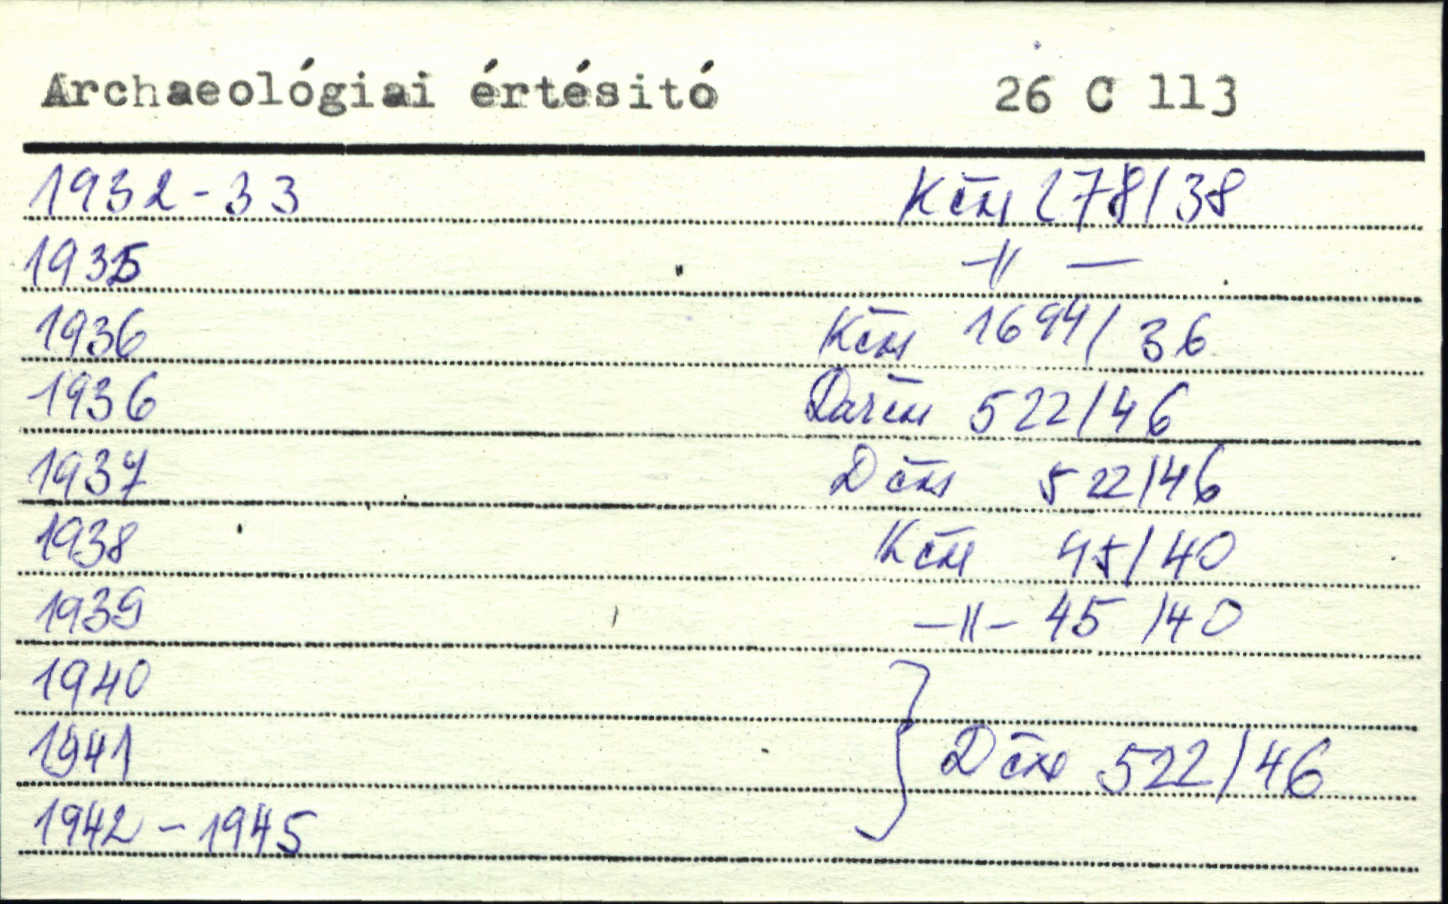 Archaeológiai értésitó 26 C 113
1932-33 Kčs 278/38
1935 -〃-
1936 Kčs 1694/36
1936 Darčs 522/46
1937 D čs 522/46
1938 Kčs 45/40
1939 -〃- 45/40
1940
1941 } D čs 522/46
1942-1945